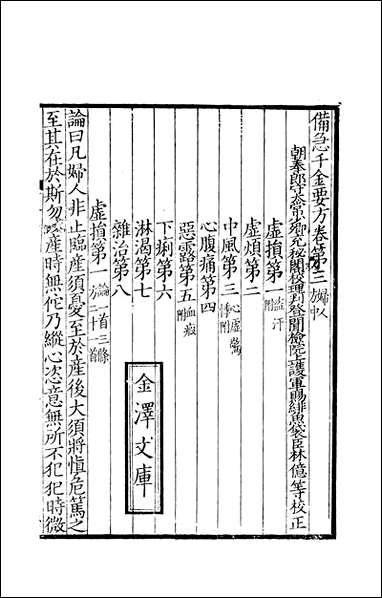 備急千金要方卷第三 婦人中
朝奉郎守太常少卿充秘閣校理判登聞檢院上護軍賜緋魚袋臣林億等校正
虛損第一 盜汗附
虛煩第二
中風第三 心虛驚悸附
心腹痛第四
惡露第五 血瘕附
下痢第六
淋渴第七
雜治第八
金澤文庫
虛損第一 論一首三條方二十一首
論曰凡婦人非止臨産須憂至於産後大須將慎危篤之
至其在於斯勿以産時無佗乃縱心恣意無所不犯犯時微